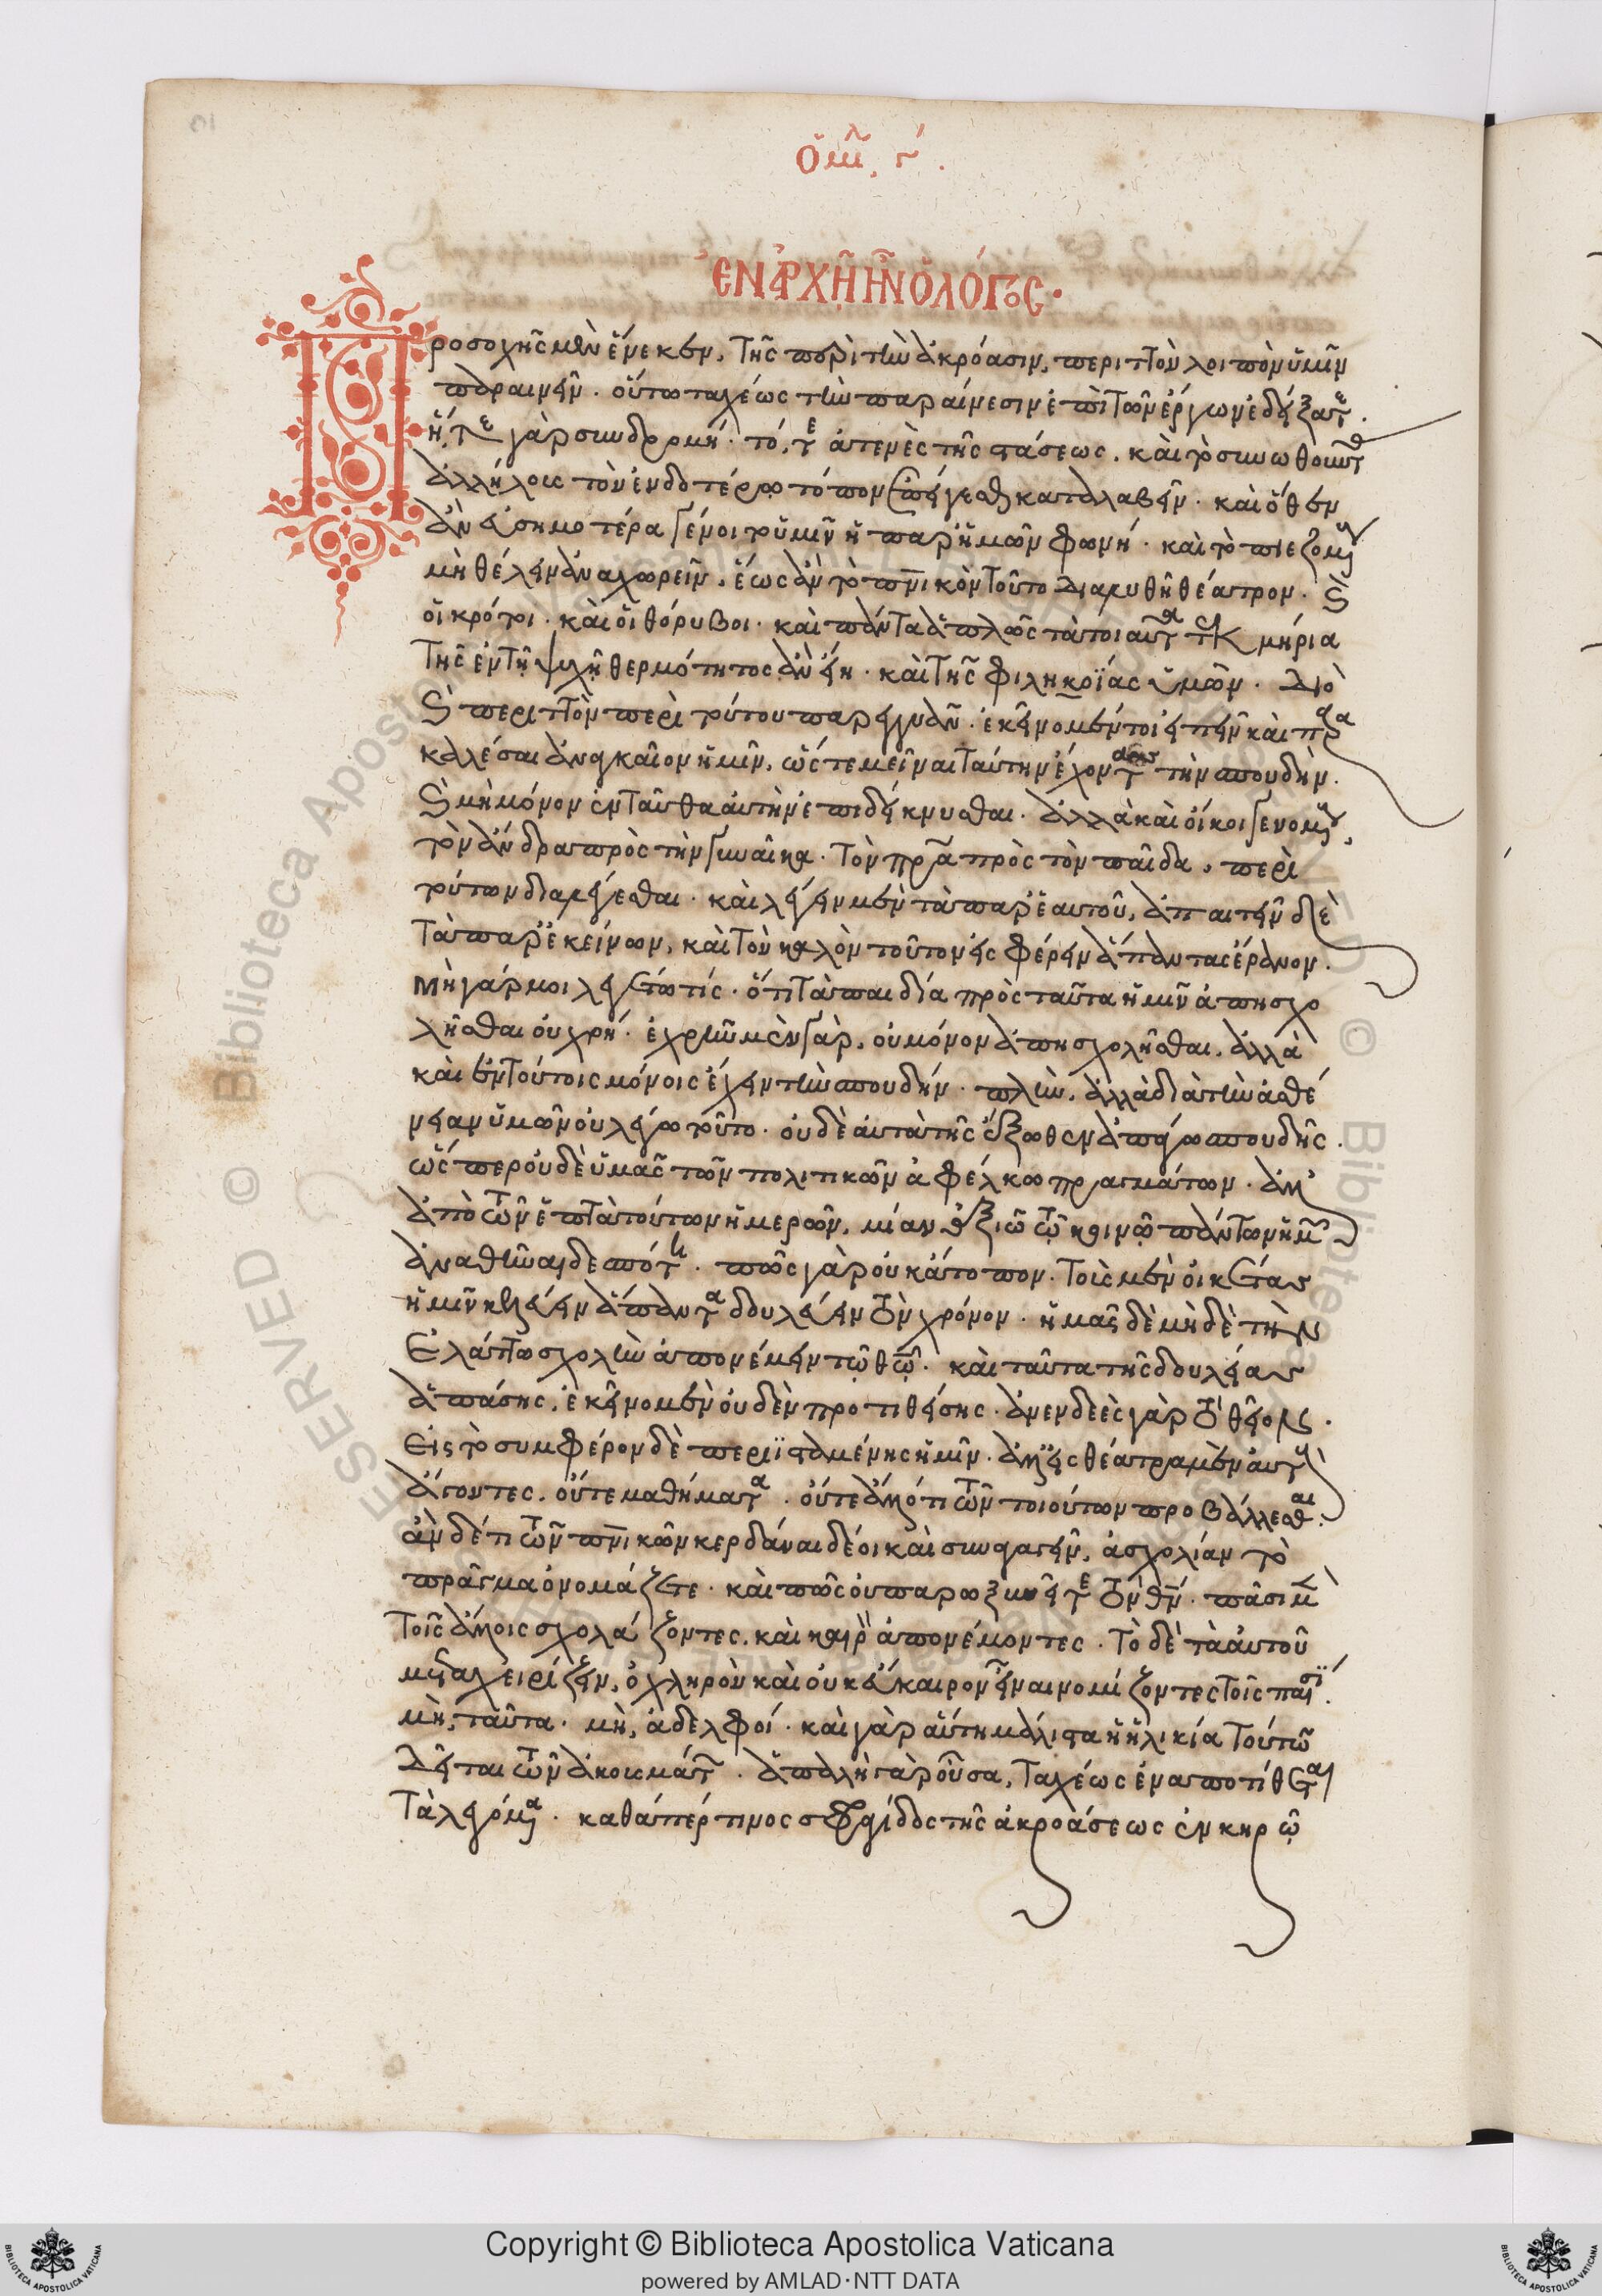 ὁμιλ. γ΄.
ἘΝ ἈΡΧΗ͂Ι ἮΝ Ὁ ΛΌΓΟΣ·
Προσοχῆς μὲν ἕνεκεν, τῆς περὶ τὴν ἀκρόασιν, περιττὸν λοιπὸν ὑμῖν
παραινεῖν· οὕτω ταχέως τὴν παραίνεσιν ἐπὶ τῶν ἔργων ἐδείξατε.
ἥ, τε γὰρ συνδρομή· τό, τε ἀτενὲς τῆς στάσεως, καὶ τὸ συνωθοῦντας
ἀλλήλους τὸν ἐνδοτέρω τόπον ἐπείγεσθαι καταλαβεῖν· καὶ ὅθεν
ἂν εὐσημοτέρα γένοιτο ὑμῖν ἡ παρ' ἡμῶν φωνή· καὶ τὸ πιεζομένους
μὴ θέλειν ἀναχωρεῖν, ἕως ἂν τὸ πνικὸν τοῦτο διαλυθῆ θέατρον· καὶ
οἱ κρότοι· καὶ οἱ θόρυβοι· καὶ πάντα ἁπλῶς τὰ τοιαῦτα τεκμήρια
τῆς ἐν τῆ ψυχῆ θερμότητος ἂν εἴη· καὶ τῆς φιληκοΐας ὑμῶν· διὸ
καὶ περιττὸν περὶ τούτου παρεγγυᾶν· ἐκεῖνο μέντοι εἰπεῖν καὶ παρα
καλέσαι ἀναγκαῖον ἡμῖν, ὥστε μεῖναι ταύτην ἔχοντας τὴν σπουδήν.
καὶ μὴ μόνον ἐνταῦθα αὐτὴν ἐπιδείκνυσθαι· ἀλλὰ καὶ οἴκοι γενομένους,
τὸν ἄνδρα πρὸς τὴν γυναῖκα· τὸν πρα πρὸς τὸν παῖδα, περὶ
τούτων διαλέγεσθαι· καὶ λέγειν μὲν τὰ παρ' ἑαυτοῦ, ἀπαιτεῖν δὲ
τὰ παρ' ἐκείνων, καὶ τὸν καλὸν τοῦτον εἰσφέρειν ἅπαντας ἔρανον.
μὴ γάρ μοι λεγέτω τίς· ὅτι τὰ παιδία πρὸς ταῦτα ἡμῖν ἀπησχο
λῆσθαι οὐ χρή· ἐχρῆν μὲν γὰρ, οὐ μόνον ἀπησχολῆσθαι, ἀλλὰ
καὶ ἐν τούτοις μόνοις ἔχειν τὴν σπουδήν· πλὴν, ἀλλὰ διὰ τὴν ἀσθέ
νειαν ὑμῶν οὐ λέγω τοῦτο· οὐδὲ αὐτὰ τῆς ἔξωθεν ἀπάγω σπουδῆς.
ὥσπερ οὐδὲ ὑμᾶς τῶν πολιτικῶν ἀφέλκω πραγμάτων· ἀλλ'
ἀπὸ τῶν ἑπτὰ τούτων ἡμερῶν, μίαν ἀξιῶ τῷ κοινῷ πάντων ἡμῶν
ἀναθῆναι δεσπότη· πῶς γὰρ οὐκ ἄτοπον. τοῖς μὲν οἰκέταις
ἡμῖν κελεύειν ἅπαντα δουλεύειν τὸν χρόνον· ἡμᾶς δὲ μηδὲ τὴν
ἐλάττω σχολὴν ἀπονέμειν τῷ θῷ· καὶ ταῦτα τῆς δουλείας
ἁπάσης, ἐκείνω μὲν οὐδὲν προστιθείσης· ἀνενδεὲς γὰρ τὸ θεῖον.
εἰς τὸ συμφέρον δὲ περιϊσταμένης ἡμῖν· ἀλλ' εἰς θέατρα μὲν αὐτοὺς
ἄγοντες, οὔτε μαθήματα· οὔτε ἄλλό τι τῶν τοιούτων προβάλλεσθαι.
ἂν δέ τι τῶν πνικῶν κερδᾶναι δέοι καὶ συναγαγεῖν, ἀσχολίαν τὸ
πρᾶγμα ὀνομάζετε· καὶ πῶς οὐ παροξυνεῖτε τὸν θν· πᾶσι μὲν
τοῖς ἄλλοις σχολάζοντες, καὶ καιρὸν ἀπονέμοντες· τὸ δὲ τὰ αὐτοῦ
μεταχειρίζειν, ὀχληρὸν καὶ οὐκ εὔκαιρον εἶναι νομίζοντες τοῖς παισί.
μὴ, ταῦτα· μὴ, ἀδελφοί· καὶ γὰρ αὕτη μάλιστα ἡ ἡλικία τούτων
δεῖται τῶν ἀκουσμάτων· ἁπαλὴ γὰρ οὖσα, ταχέως ἐναποτίθεται
τὰ λεγόμενα· καθάπέρ τινος σφραγίδος τῆς ἀκροάσεως ἐν κηρῷ